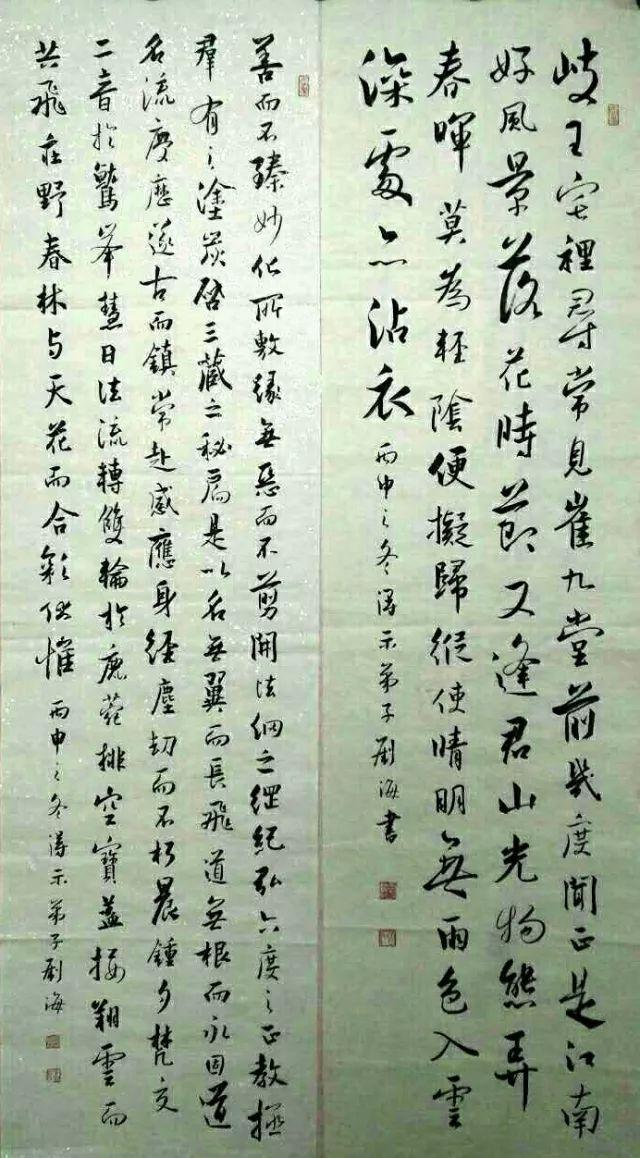 歧王宅裡尋常見崔九堂前幾度聞正是江南
好風景落花時節又逢君山光物態弄
春暉莫為輕陰便擬歸縱使晴明無雨色入雲
深處亦沾衣
丙申之冬得示弟子劉海書
善而不臻妙化所敷緣無惡而不剪開法網之綱紀弘六度之正教拯
群有之塗炭啓三藏之秘扃是以名無翼而長飛道無根而永固道
名流慶歷遂古而鎮常赴感應身經塵劫而不朽晨鍾夕梵交
二音於鷲峯慧日法流轉雙輪於鹿菀排空寶蓋接翔雲而
共飛莊野春林与天花而合彩伏惟
丙申之冬得示弟子劉海